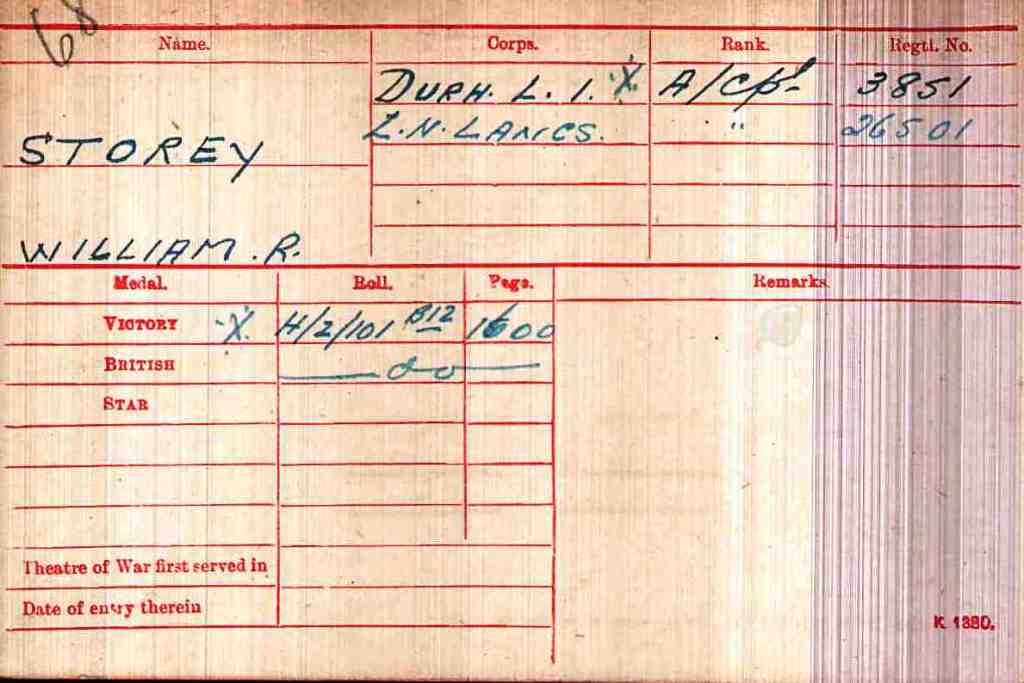 68
Name. Corps. Rank. Regtl. No.
DURH. L. I. X. A/Cpl 3851
STOREY L.N. LANCS. " 26501
WILLIAM. R.
Medal. Roll. Page. Remarks.
VICTORY X. H/2/101 B12 1600
BRITISH do
STAR
Theatre of War first served in
Date of entry therein
K 1380.